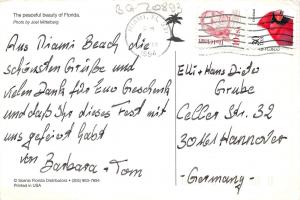 The peaceful beauty of Florida.
Photo by Joel Mittelberg
BG 20893
Aus Miami Beach die
schönsten Grüße und
vielen Dank für Eure Geschenk
und daß Ihr dieses Fest mit
uns gefeiert habt
von Barbara + Tom
Elli + Hans Dieter
Grube
Celler Str. 32
30161 Hannover
- Germany -
© Islamo Florida Distributors • (305) 963-7694
Printed in USA